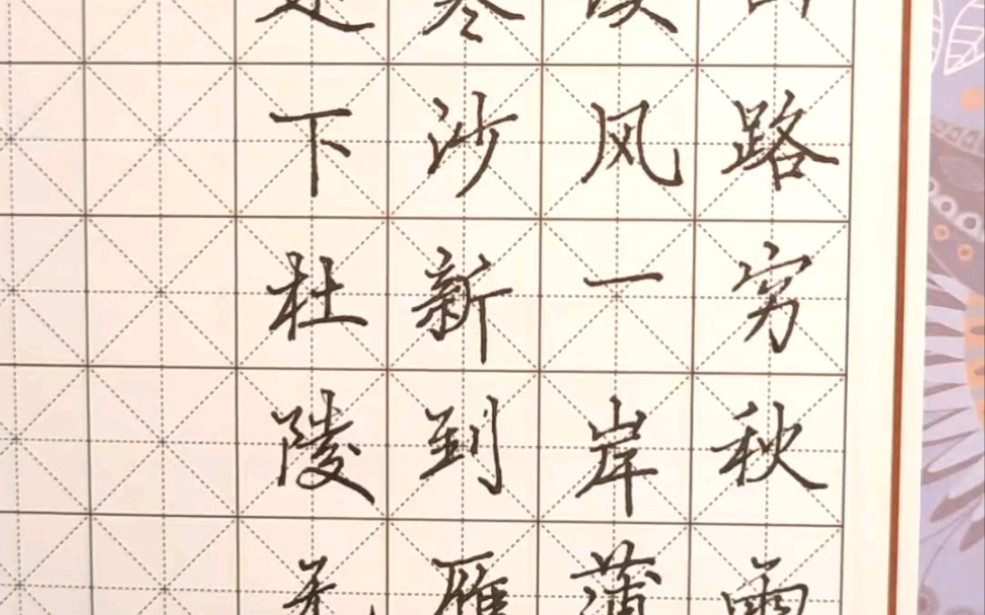 路穷秋雨
风一岸蒲
寒沙新到雁
下杜陵